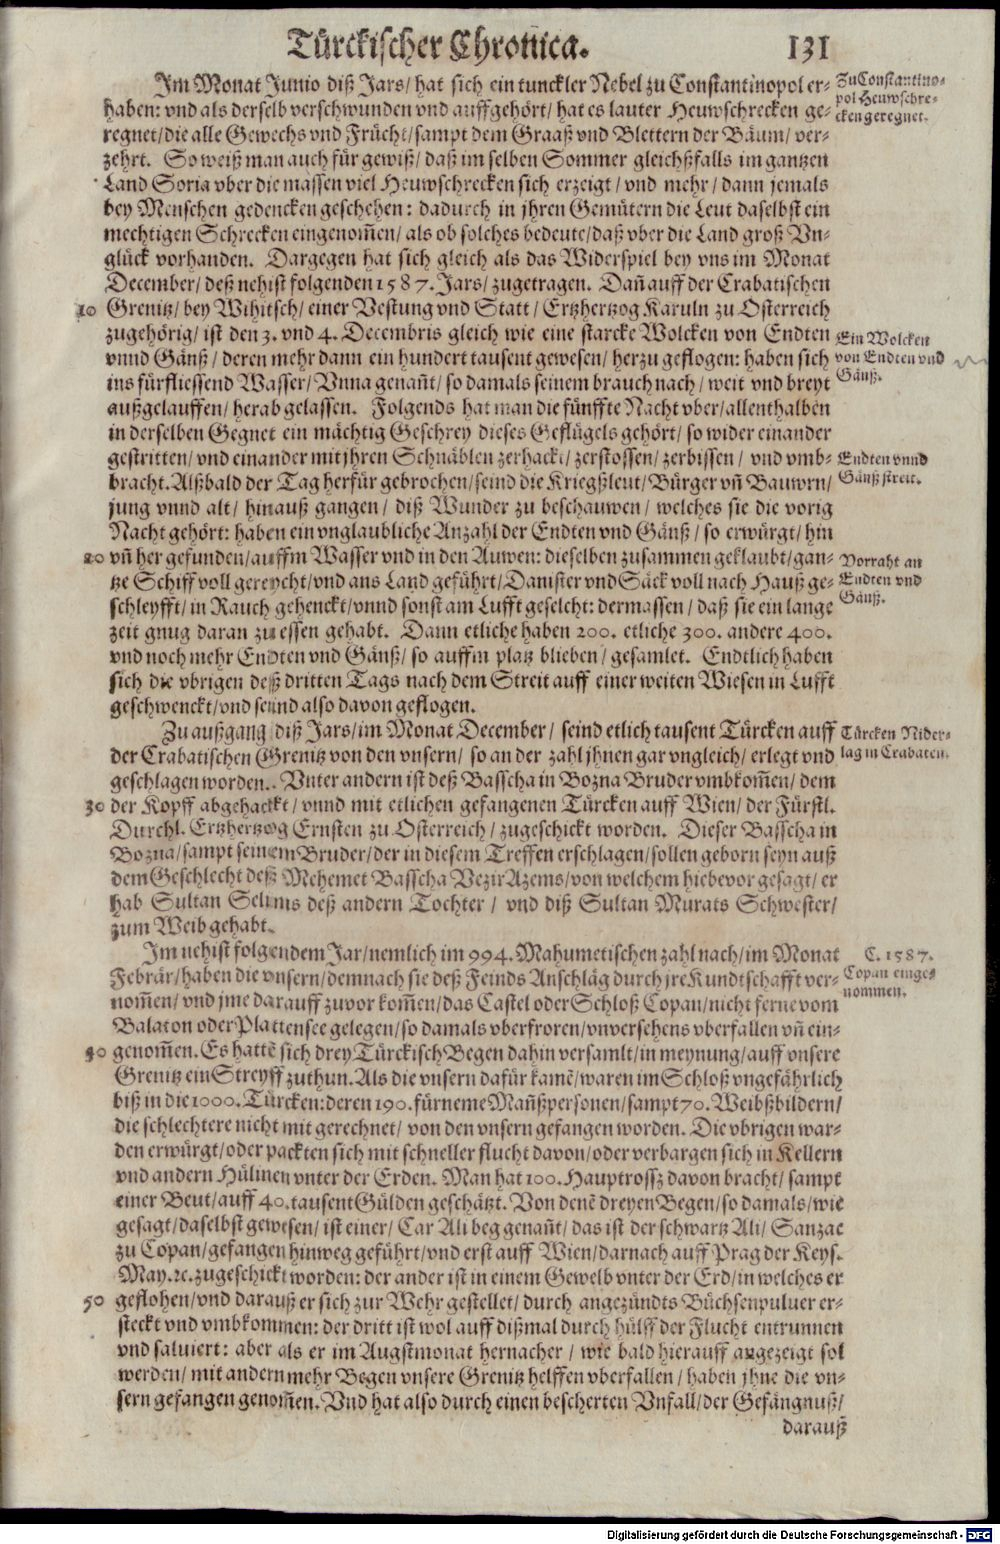 Türckischer Chronica. 131
Im Monat Junio diß Jars/ hat sich ein tunckler Nebel zu Constantinopol er-
haben: vnd als derselb verschwunden vnd auffgehört/ hat es lauter Heuwschrecken ge-
regnet/ die alle Gewechs vnd Frücht/ sampt dem Graaß vnd Blettern der Bäum/ ver-
zehrt. So weiß man auch für gewiß/ daß im selben Sommer gleichßfalls im gantzen
Land Soria vber die massen viel Heuwschrecken sich erzeigt/ vnd mehr/ dann jemals
bey Menschen gedencken geschehen: dadurch in jhren Gemütern die Leut daselbst ein
mechtigen Schrecken eingenom̄en/ als ob solches bedeute/ daß vber die Land groß Vn-
glück vorhanden. Dargegen hat sich gleich als das Widerspiel bey vns im Monat
December/ deß nehist folgenden 1587. Jars/ zugetragen. Dañ auff der Crabatischen
10 Grenitz/ bey Wihitsch/ einer Vestung vnd Statt/ Ertzhertzog Karuln zu Osterreich
zugehörig/ ist den 3. vnd 4. Decembris gleich wie eine starcke Wolcken von Endten
vnnd Gänß/ deren mehr dann ein hundert tausent gewesen/ herzu geflogen: haben sich
ins fürfliessend Wasser/ Vnna genañt/ so damals seinem brauch nach/ weit vnd breyt
außgelauffen/ herab gelassen. Folgends hat man die fünffte Nacht vber/ allenthalben
in derselben Gegnet ein mächtig Geschrey dieses Geflügels gehört/ so wider einander
gestritten/ vnd einander mit jhren Schnäblen zerhackt/ zerstossen/ zerbissen/ vnd vmb-
bracht. Alßbald der Tag herfür gebrochen/ seind die Kriegßleut/ Bürger vñ Bauwrn/
jung vnnd alt/ hinauß gangen/ diß Wunder zu beschauwen/ welches sie die vorig
Nacht gehört: haben ein vnglaubliche Anzahl der Endten vnd Gänß/ so erwürgt/ hin
20 vñ her gefunden/ auffm Wasser vnd in den Auwen: dieselben zusammen geklaubt/ gan-
tze Schiff voll gereycht/ vnd ans Land geführt/ Danister vnd Säck voll nach Hauß ge-
schleyfft/ in Rauch gehenckt/ vnnd sonst am Lufft geselcht: dermassen/ daß sie ein lange
zeit gnug daran zu essen gehabt. Dann etliche haben 200. etliche 300. andere 400.
vnd noch mehr Endten vnd Gänß/ so auffm platz blieben/ gesamlet. Endtlich haben
sich die vbrigen deß dritten Tags nach dem Streit auff einer weiten Wiesen in Lufft
geschwenckt/ vnd seind also davon geflogen.
Zu außgang diß Jars/ im Monat December/ seind etlich tausent Türcken auff
der Crabatischen Grenitz von den vnsern/ so an der zahl jhnen gar vngleich/ erlegt vnd
geschlagen worden. Vnter andern ist deß Basscha in Bozna Bruder vmbkom̄en/ dem
30 der Kopff abgehackt/ vnnd mit etlichen gefangenen Türcken auff Wien/ der Fürstl.
Durchl. Ertzhertzog Ernsten zu Osterreich/ zugeschickt worden. Dieser Basscha in
Bozna/ sampt seinem Bruder/ der in diesem Treffen erschlagen/ sollen geborn seyn auß
dem Geschlecht deß Mehemet Basscha Vezir Azems/ von welchem hiebevor gesagt/ er
hab Sultan Selims deß andern Tochter/ vnd diß Sultan Murats Schwester/
zum Weib gehabt.
Im nehist folgendem Jar/ nemlich im 994. Mahumetischen zahl nach/ im Monat
Febrär/ haben die vnsern/ demnach sie deß Feinds Anschläg durch jre Kundtschafft ver-
nom̄en/ vnd jme darauff zuvor kom̄en/ das Castel oder Schloß Copan/ nicht ferne vom
Balaton oder Plattensee gelegen/ so damals vberfroren/ vnversehens vberfallen vñ ein-
40 genom̄en. Es hattē sich drey Türckisch Begen dahin versamlt/ in meynung/ auff vnsere
Grenitz ein Streyff zuthun. Als die vnsern dafür kamē/ waren im Schloß vngefährlich
biß in die 1000. Türcken: deren 190. fürneme Mañßpersonen/ sampt 70. Weibßbildern/
die schlechtere nicht mit gerechnet/ von den vnsern gefangen worden. Die vbrigen war-
den erwürgt/ oder packten sich mit schneller flucht davon/ oder verbargen sich in Kellern
vnd andern Hülinen vnter der Erden. Man hat 100. Hauptrossz davon bracht/ sampt
einer Beut/ auff 40. tausent Gülden geschätzt. Von denē dreyen Begen/ so damals/ wie
gesagt/ daselbst gewesen/ ist einer/ Car Ali beg genañt/ das ist der schwartz Ali/ Sanzac
zu Copan/ gefangen hinweg geführt/ vnd erst auff Wien/ darnach auff Prag der Keys.
May. ꝛc. zugeschickt worden: der ander ist in einem Gewelb vnter der Erd/ in welches er
50 geflohen/ vnd darauß er sich zur Wehr gestellet/ durch angezündts Büchsenpuluer er-
steckt vnd vmbkommen: der dritt ist wol auff dißmal durch hülff der Flucht entrunnen
vnd saluiert: aber als er im Augstmonat hernacher/ wie bald hierauff angezeigt sol
werden/ mit andern mehr Begen vnsere Grenitz helffen vberfallen/ haben jhne die vn-
sern gefangen genom̄en. Vnd hat also durch einen bescherten Vnfall/ der Gefängnuß/
darauß
Zu Constantino-
pol Heuwschre-
cken geregnet.
Ein Wolcken
von Endten vnd
Gänß.
Endten vnnd
Gänß streit.
Vorraht an
Endten vnd
Gänß.
Türcken Nider-
lag in Crabaten.
C. 1587.
Copan einge-
nommen.
Digitalisierung gefördert durch die Deutsche Forschungsgemeinschaft - DFG